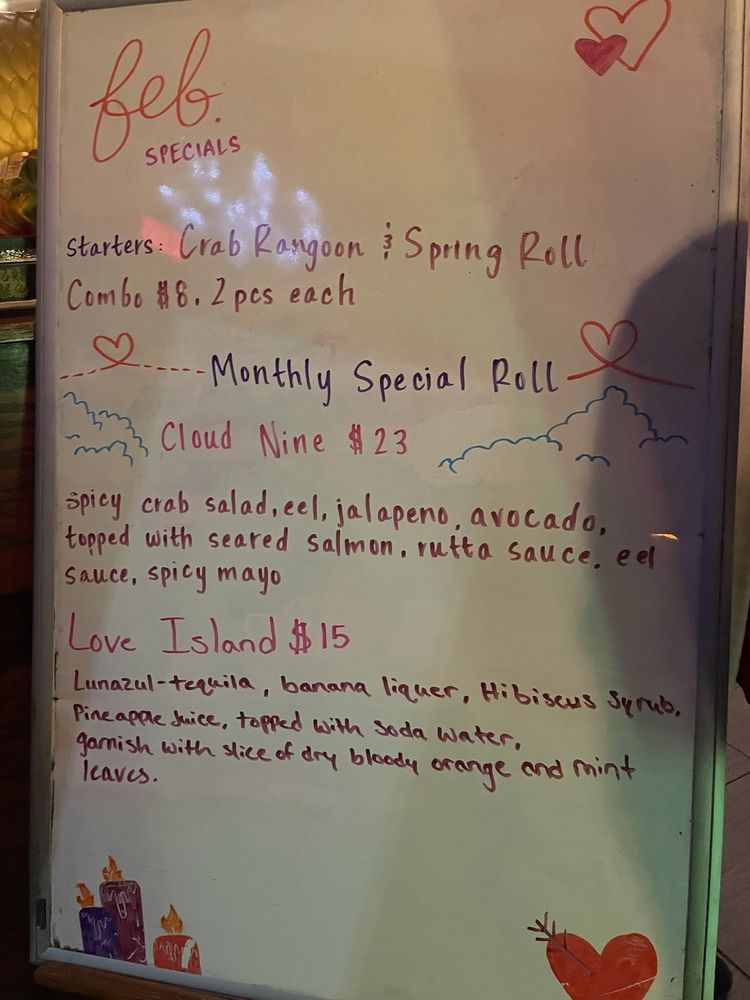 feb.
SPECIALS
Starters: Crab Rangoon & Spring Roll
Combo $8. 2 pcs each
Monthly Special Roll
Cloud Nine $23
Spicy crab salad, eel, jalapeno, avocado,
topped with seared salmon, rutta sauce, eel
sauce, spicy mayo
Love Island $15
Lunazul-tequila, banana liquer, Hibiscus Syrub,
Pineapple Juice, topped with Soda Water,
garnish with slice of dry bloody orange and mint
leaves.